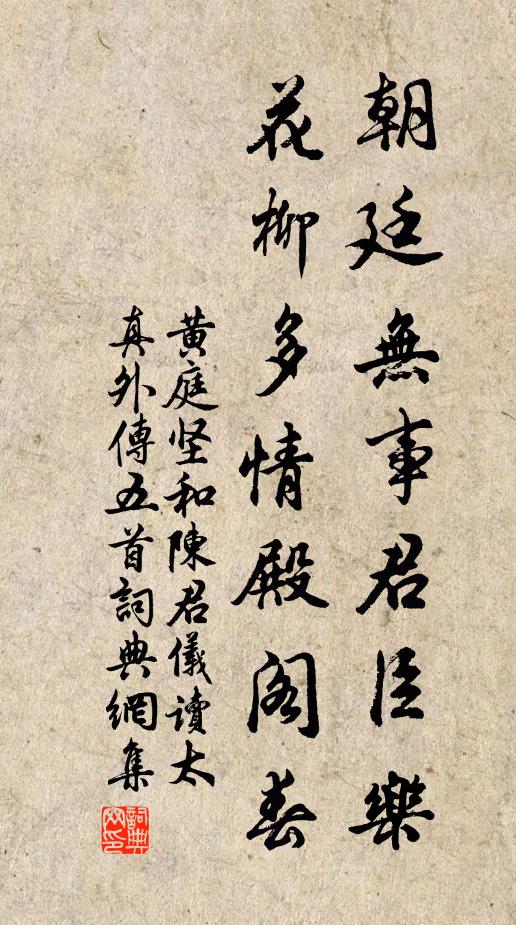 朝廷無事君臣樂
花柳多情殿阁春
黄庭坚和陳君儀讀太
真外傳五首詞典網集
詞典
网印